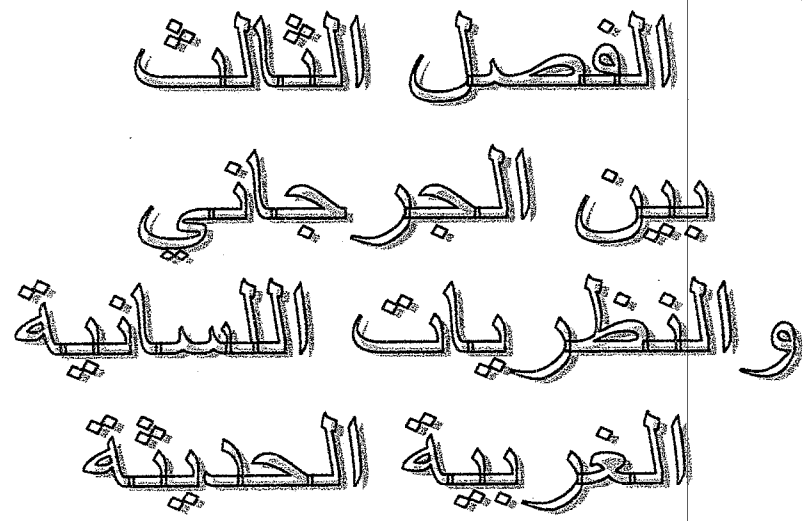 الفصل الثالث
بين الجرجاني
و النظريات اللسانية
الغربية الحديثة